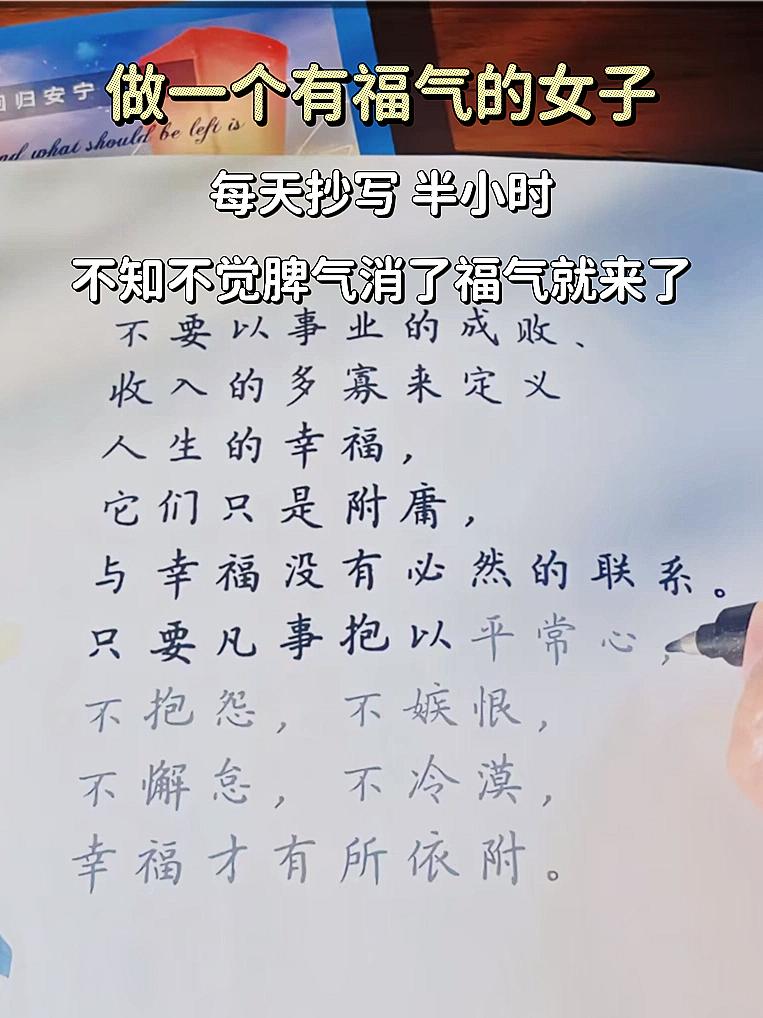 回归安宁
and what should be left is
做一个有福气的女子
每天抄写 半小时
不知不觉脾气消了福气就来了
不要以事业的成败、
收入的多寡来定义
人生的幸福，
它们只是附庸，
与幸福没有必然的联系。
只要凡事抱以平常心，
不抱怨，不嫉恨，
不懈怠，不冷漠，
幸福才有所依附。